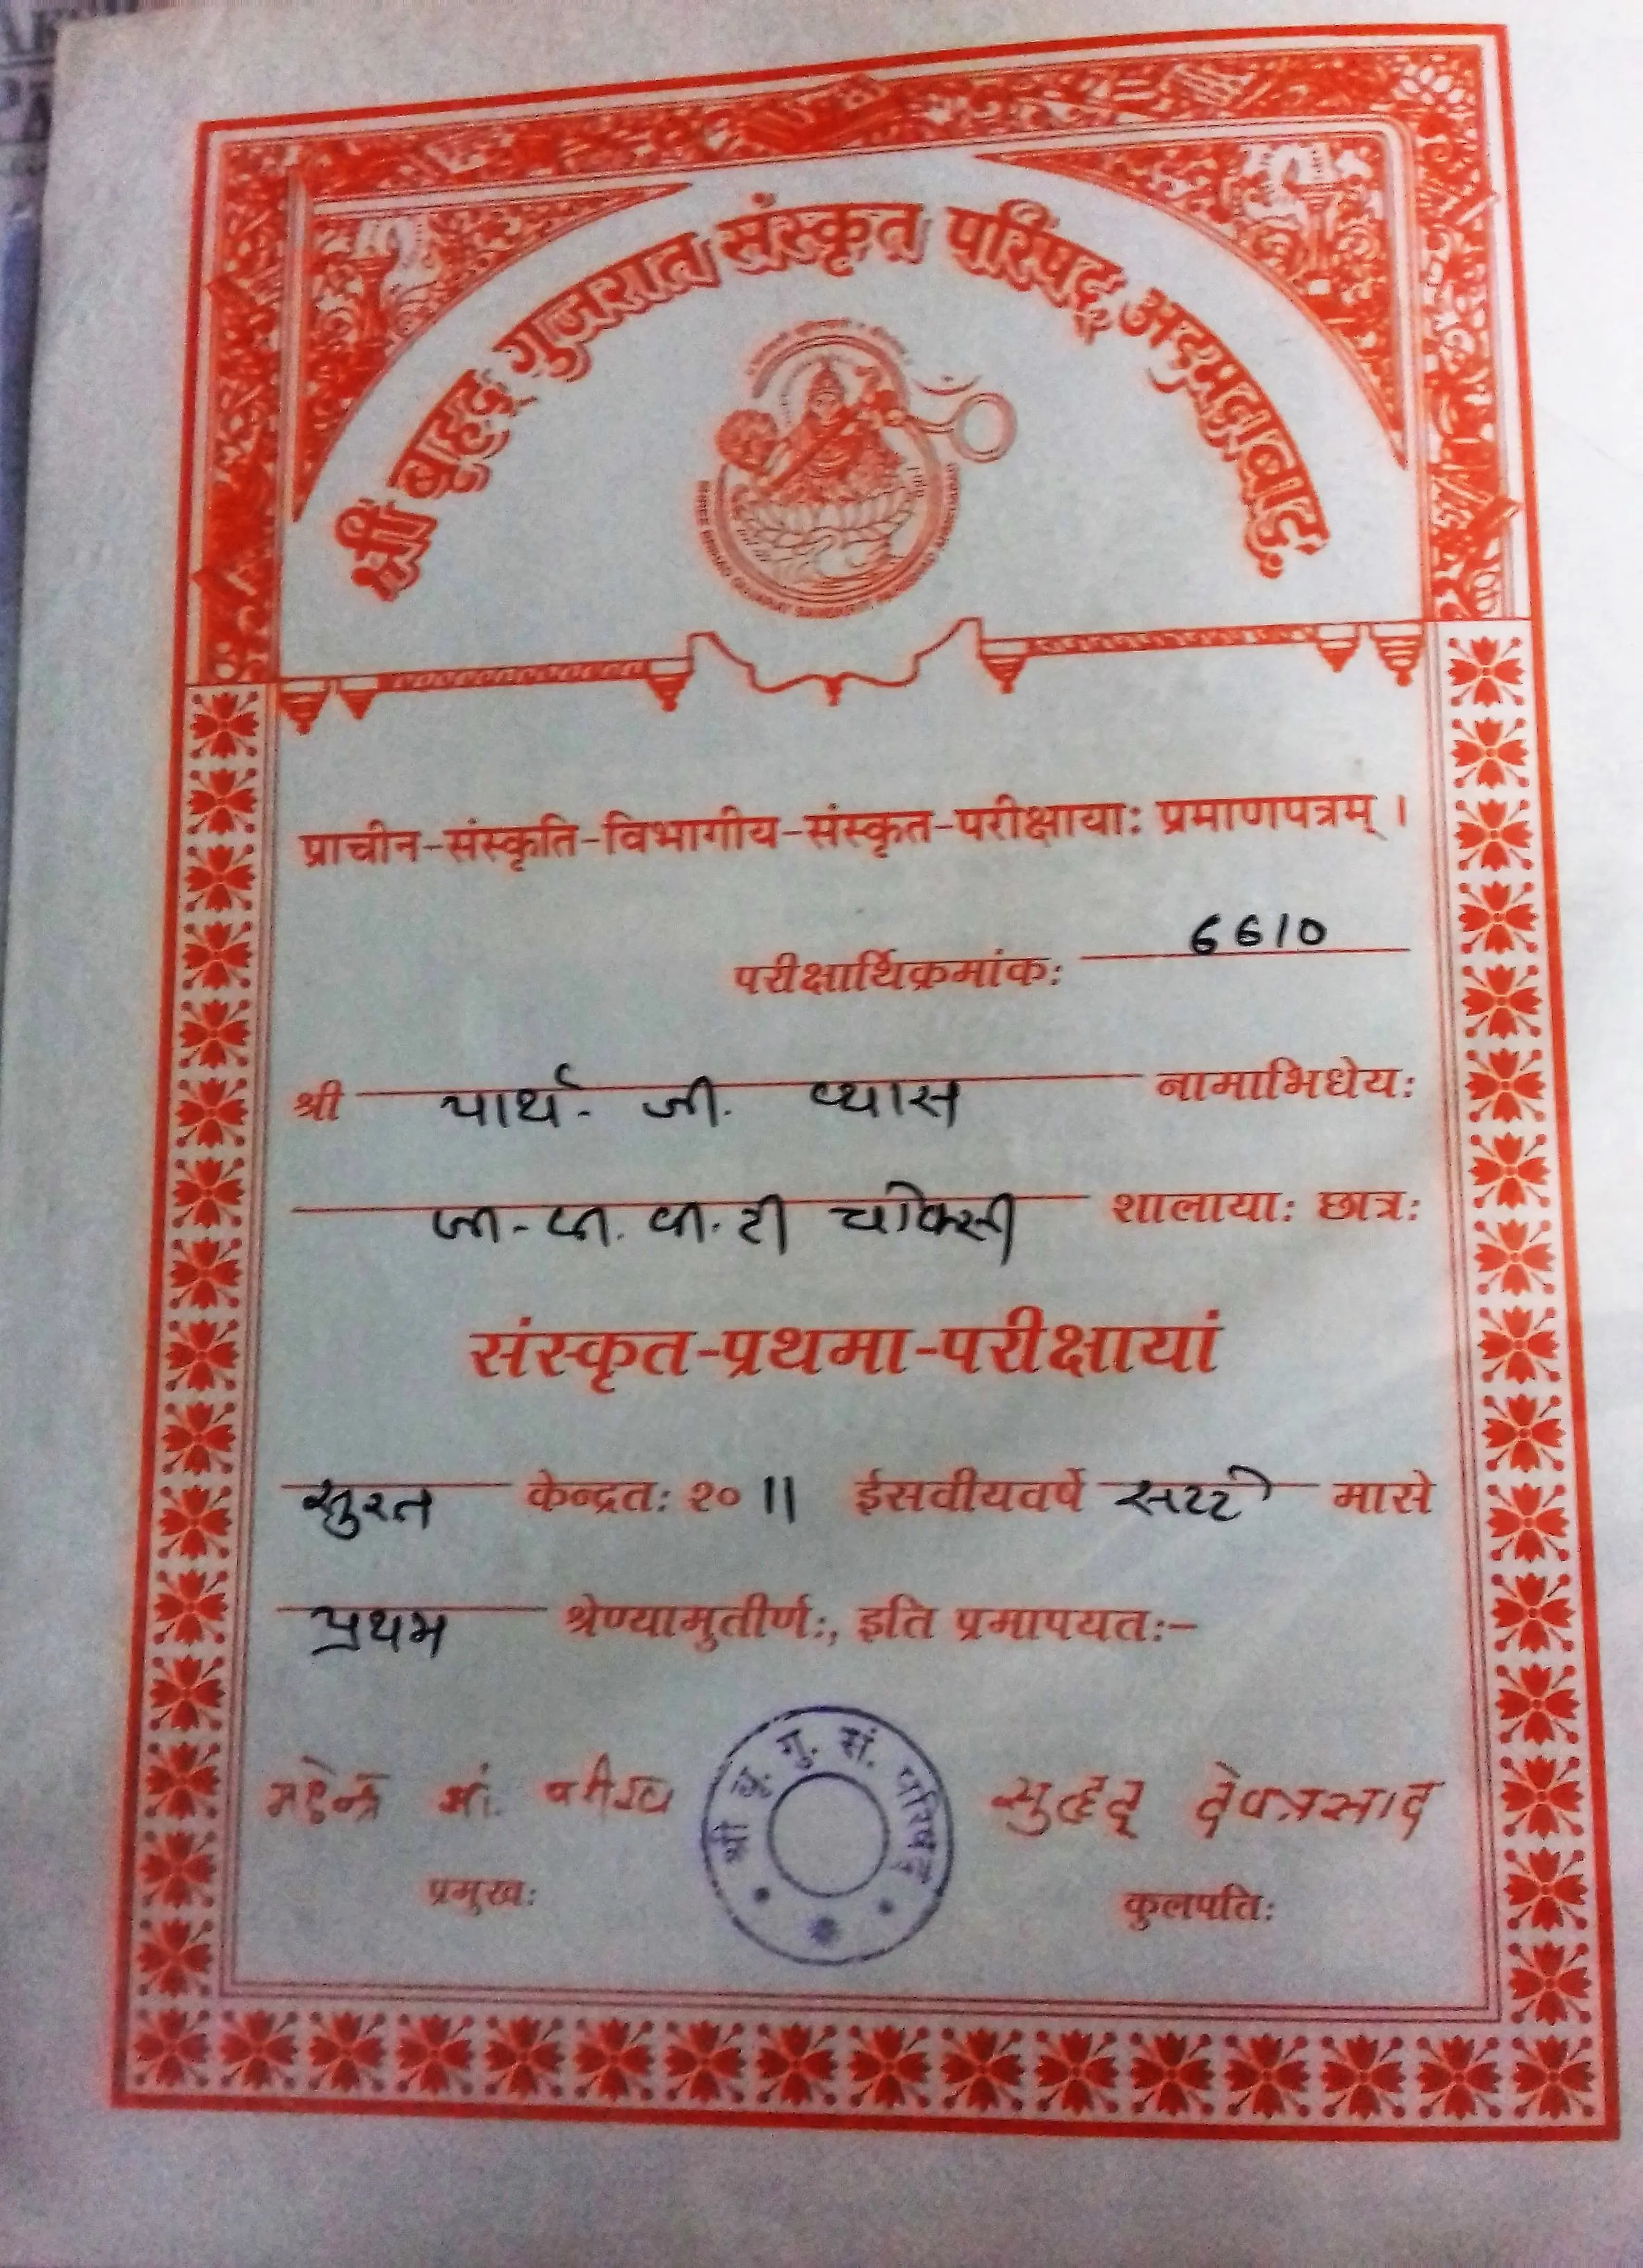 श्री बृहद् गुजरात संस्कृत परिषद् अहमदाबाद.
प्राचीन-संस्कृति-विभागीय-संस्कृत-परीक्षायाः प्रमाणपत्रम् ।
परीक्षार्थिक्रमांकः 6610
श्री पार्थ. जी. व्यास नामाभिधेयः
टी चोक्सी शालायाः छात्रः
संस्कृत-प्रथमा-परीक्षायां
सुरत केन्द्रतः २०11 ईसवीयवर्षे मासे
प्रथम श्रेण्यामुतीर्णः, इति प्रमापयतः:-
श्री बृ. गु. सं. परिषद्
महेन्द्र सुहृद् देवप्रसाद
प्रमुखः कुलपतिः